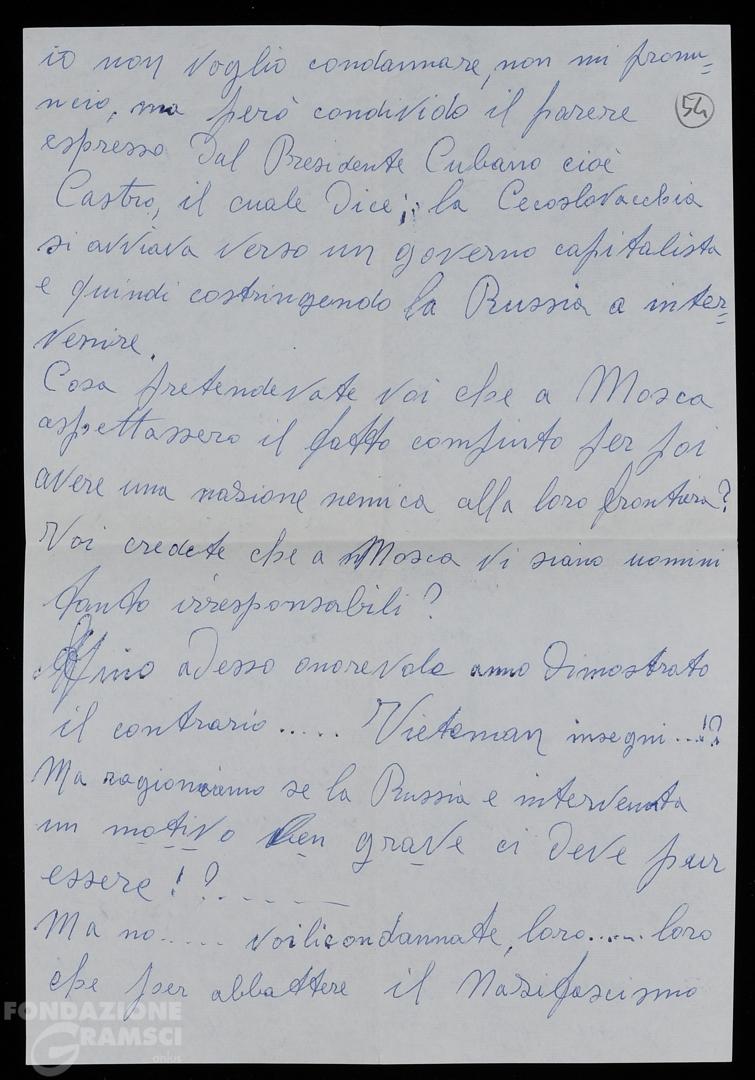 io non voglio condannare, non mi pronu=
ncio, ma però condivido il parere
54
espresso Dal Presidente Cubano cioè
Castro, il cuale Dice; la Cecoslovacchia
si avviava verso un governo capitalista
e quindi costringendo la Russia a inter=
venire.
Cosa pretendevate voi che a Mosca
aspettassero il fatto compiuto per poi
avere una nazione nemica alla loro frontiera?
Voi credete che a Mosca vi siano uomini
tanto irresponsabili?
Fino adesso onorevole anno Dimostrato
il contrario..... Vieteman insegni...!?
Ma ragioniamo se la Russia e intervenuta
un motivo ben grave ci Deve pur
essere!?......
Ma no..... voi li condannate, loro..... loro
che per abbattere il Nazifascismo
FONDAZIONE
GRAMSCI
onlus